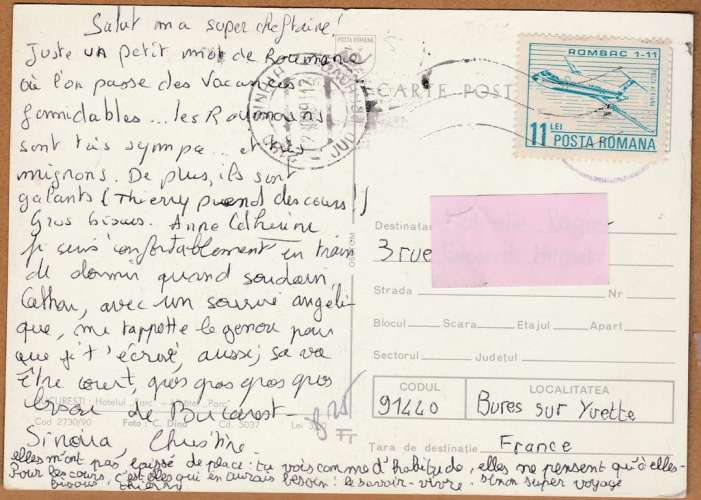 Salut ma super cheftaine!
Juste un petit mot de Roumanie
où l'on passe des vacances
formidables... les Roumains
sont très sympa... et très
mignons. De plus, ils sont
galants (Thierry prend des cours!)
Gros bisous. Anne Catherine
Je suis confortablement en train
de dormir quand soudain,
Cathou, avec un sourire angéli-
que, me tappotte le genou pour
que je t'écrive, aussi, sa va
être court, gros gros gros gros
bisou de Bucarest
Sinoua, Christine
elles m'ont pas laissé de place: tu vois comme d'habitude, elles ne pensent qu'à elles-
Pour les cours, c'est elles qui en aurais besoin: le savoir-vivre. Sinon super voyage
bisous thierry
BUCUREŞTI: Hotelul "Parc"
Cod 2730/90 Foto: C. Dina Cd. 5037 Lei
FF
POSTA ROMANA
CARTE POST
ROMBAC 1-11
11 LEI
POSTA ROMANA
Destinatar
3 rue
Strada Nr
Blocul Scara Etajul Apart
Sectorul Judeţul
CODUL
91440
LOCALITATEA
Bures sur Yvette
Ţara de destinaţie France